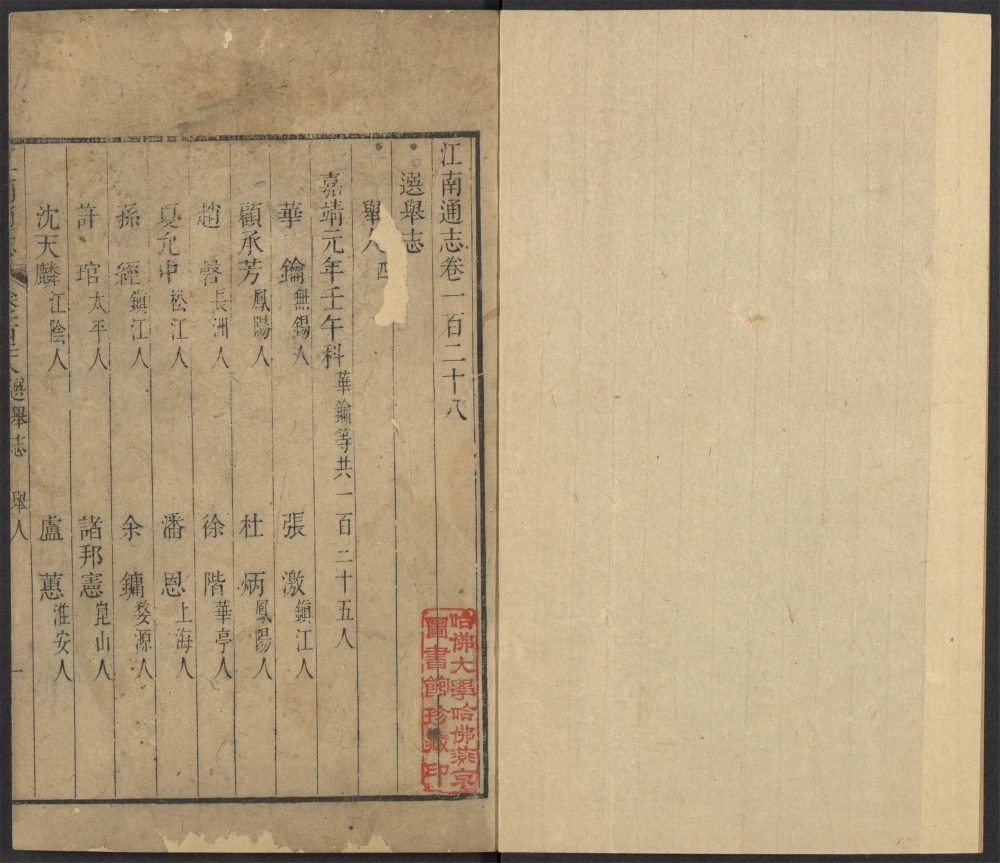 江南通志卷一百二十八
選舉志
舉人四
嘉靖元年壬午科華鑰等共一百二十五人
華鑰無錫人 張激鎭江人
顧承芳鳳陽人 杜炳鳳陽人
趙磐長洲人 徐階華亭人
夏允中松江人 潘恩上海人
孫經鎭江人 余鏞婺源人
許琯太平人 諸邦憲崑山人
沈天麟江陰人 盧蕙淮安人
選舉志 舉人 一
哈佛大學哈佛燕京
圖書館珍藏印